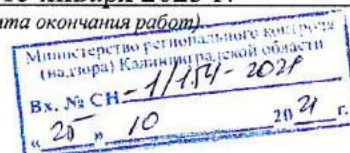 та окончания работ)
Министерство регионального контроля
(надзора) Калининградской области
Вх. № СН - 1/154 - 2021
« 25 » 10 20 21 г.